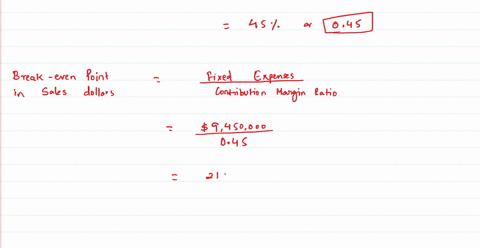 = 45% or 0.45
Break-even Point in Sales dollars = Fixed Expenses / Contribution Margin Ratio
= $9,450,000 / 0.45
= 21.